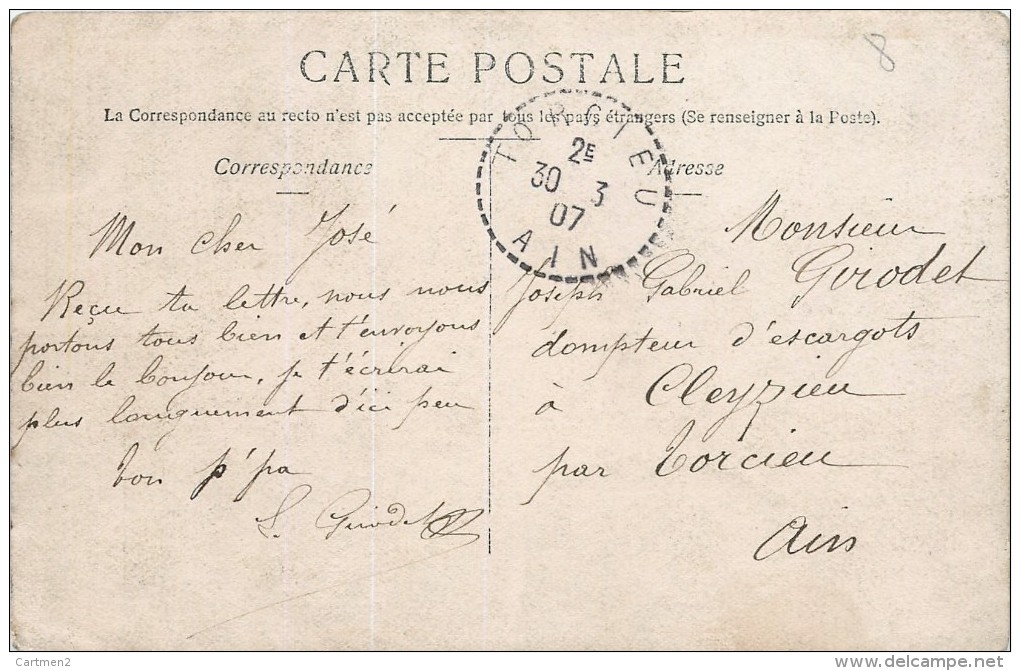 8
CARTE POSTALE
La Correspondance au recto n'est pas acceptée par tous les pays étrangers (Se renseigner à la Poste).
Correspondance
Mon cher José
Reçu ta lettre, nous nous
portons tous bien et t'envoyons
bien le bonjour, je t'écrirai
plus longuement d'ici peu
ton p'pa
L. Girodet
TORCIEU
2E
30 3
07
AIN
Adresse
Monsieur
Joseph Gabriel Girodet
dompteur d'escargots
à Cleyzieu
par Torcieu
Ain
Cartmen2
www.delcampe.net